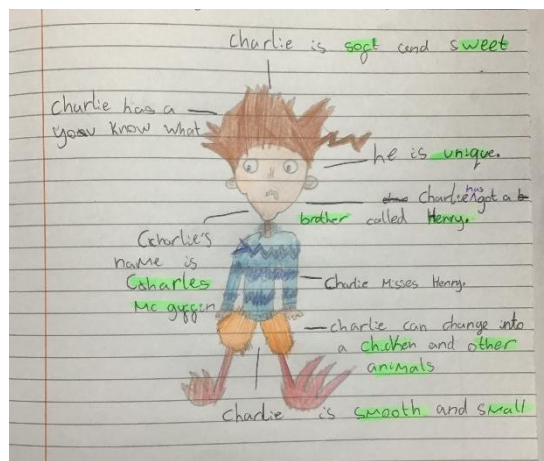 Charlie is soft and sweet
Charlie has a
you know what
he is unique.
Charlie has got a
brother called Henry.
Charlie's
name is
Charles
Mc guffin
Charlie Misses Henry.
Charlie can change into
a chicken and other
animals
Charlie is smooth and small